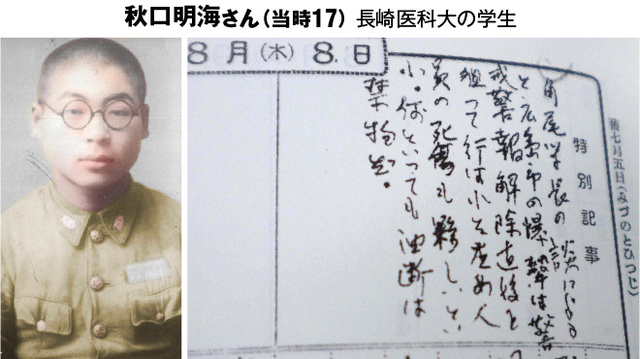 秋口明海さん（当時17） 長崎医科大の学生
8月(木)8.日
舊七月五日(みづのとひつじ)
特別記事
角尾学長の
と広島市の爆撃は警
戒警報解除直後を
狙って行はれた為め人
員の死傷も夥しいとい
ふ。何といっても油断は
禁物だ。